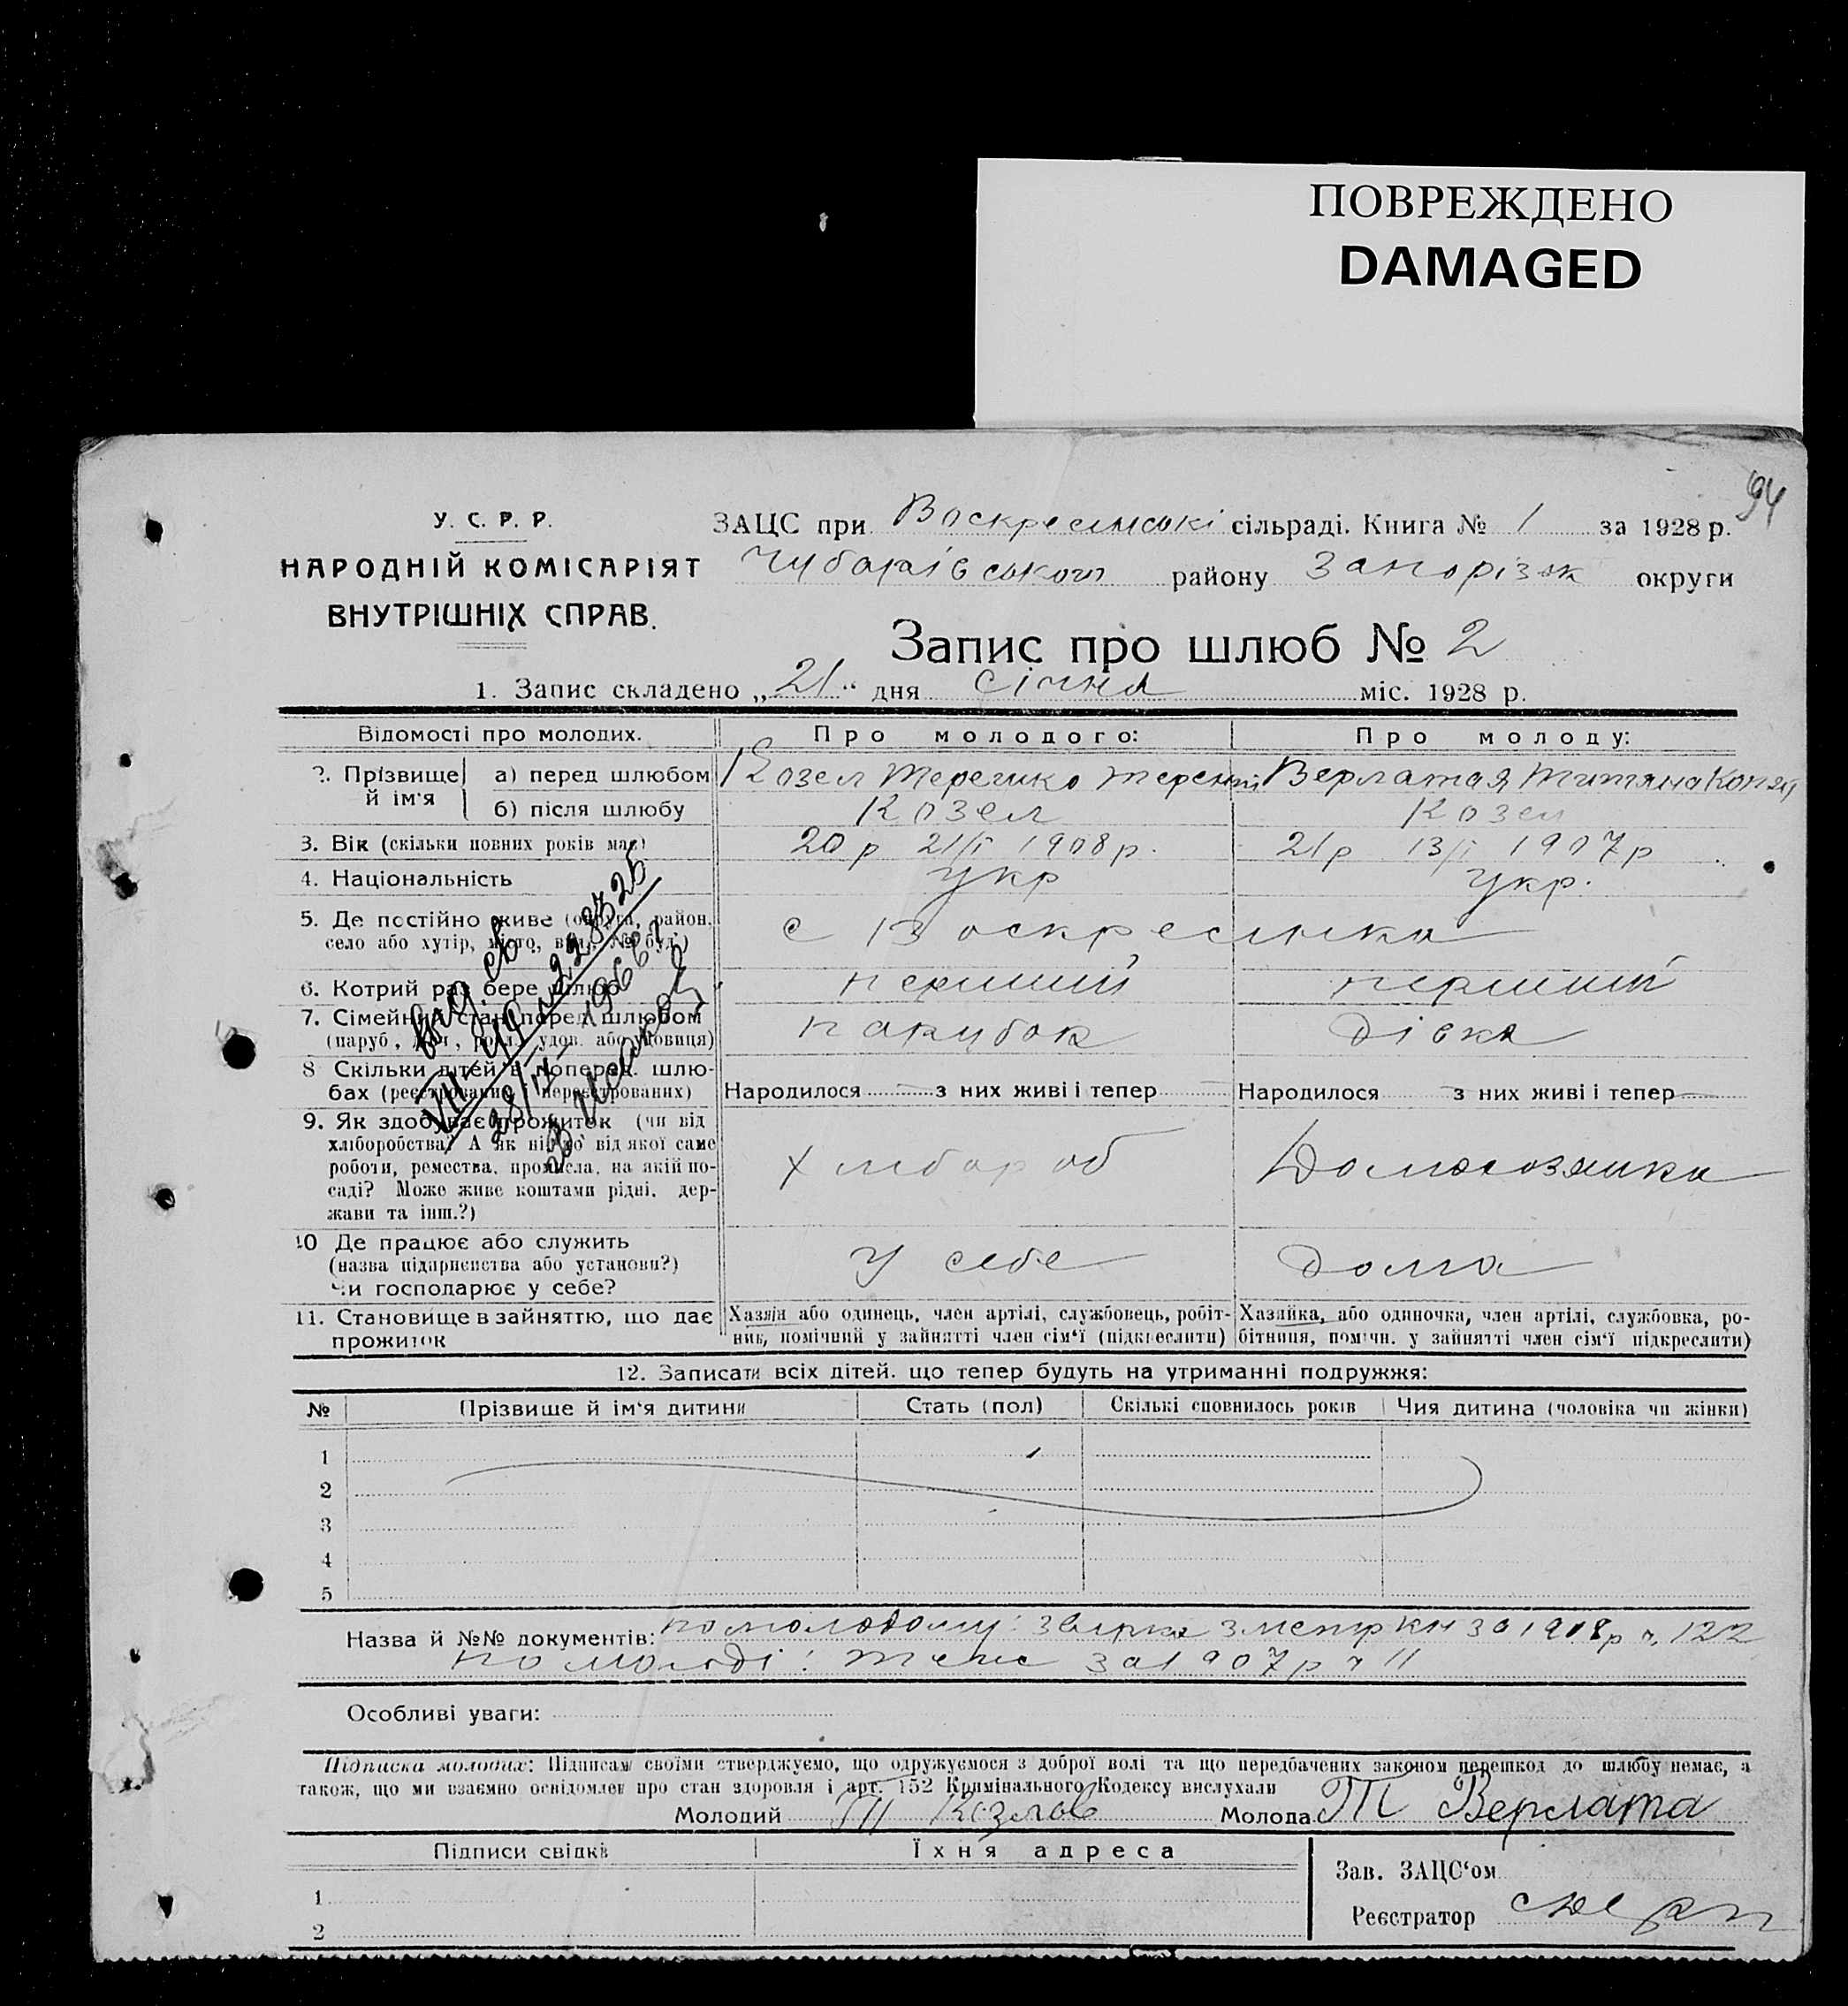 ПОВРЕЖДЕНО
DAMAGED
94
У. С. Р. Р.
НАРОДНІЙ КОМІСАРІЯТ
ВНУТРІШНІХ СПРАВ.
ЗАЦС при Воскресенські сільраді. Книга № 1 за 1928 р.
Чубарівського району Запорізьк округи
Запис про шлюб № 2
1. Запис складено „21“ дня січня міс. 1928 р.
Відомості про молодих. Про молодого: Про молоду:
2. Прізвище й ім'я а) перед шлюбом Козел Верлатая
б) після шлюбу Козел Козел
3. Вік (скільки повних років має) 20 р 21/I 1908 р. 21 р 13/I 1907 р
4. Національність укр укр.
5. Де постійно живе (округа, район,
село або хутір, місто, вул., № буд.)
с Воскресенка
6. Котрий раз бере шлюб перший перший
7. Сімейний стан перед шлюбом
(паруб., розл., удов. або удовиця)
парубок дівка
8 Скільки дітей в поперед. шлю-
бах (реєстрованих нереєстрованих) Народилося з них живі і тепер Народилося з них живі і тепер
9. Як здобуває прожиток (чи від
хліборобства? А як ні, то від якої саме
роботи, ремества, промисла, на якій по-
саді? Може живе коштами рідні, дер-
жави та інш.?)
Хлібороб Домохозяйка
10 Де працює або служить
(назва підприємства або установи?)
Чи господарює у себе?
У себе Дома
11. Становище в зайняттю, що дає
прожиток
Хазяїн або одинець, член артілі, службовець, робіт-
ник, помічний у зайнятті член сім'ї (підкреслити)
Хазяйка, або одиночка, член артілі, службовка, ро-
бітниця, помічн. у зайнятті член сім'ї підкреслити)
12. Записати всіх дітей. що тепер будуть на утриманні подружжя:
№ Прізвише й ім'я дитини Стать (пол) Скількі сповнилось років Чия дитина (чоловіка чи жінки)
1
2
3
4
5
Назва й №№ документів: по молодому: звірка з метр кн за 1908 р ч. 122
по молоді: теж за 1907 р ч 11
Особливі уваги:
Підписка молодих: Підписам своїми стверджуємо, що одружуємося з доброї волі та що передбачених законом перешкод до шлюбу немає, а
також, що ми взаємно освідомлен про стан здоровля і арт. 152 Кримінального Кодексу вислухали
Молодий Козлов Молода Т Верлата
Підписи свідкв Їхня адреса
1
2
Зав. ЗАЦС'ом
Реєстратор